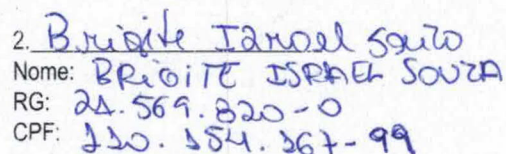 2. Brigite Israel Souza
Nome: BRIGITE ISRAEL SOUZA
RG: 21.569.820-0
CPF: 110.154.167-99